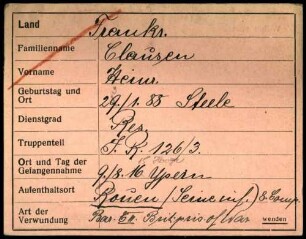 Land Frankr.
Familienname Clausen
Vorname Heinr.
Geburtstag und Ort 29/1.88 Steele
Dienstgrad Res.
Truppenteil I. R. 126/3.
Ort und Tag der Gefangennahme 9/8.16 Ypern
Aufenthaltsort Rouen (Seine inf.) 8 Comp.
Art der Verwundung Pris of War wenden